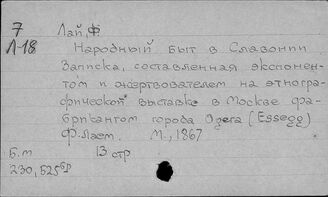 7 Лай, Ф.
Л-18
Народный быт в Славонии
Записка, составленная экспонен-
том и жертвователем на этногра-
фической выставке в Москве фа-
брикантом города Озега (Essegg)
Ф. Лаем. М., 1867
Б.м 13 стр
230,525бр